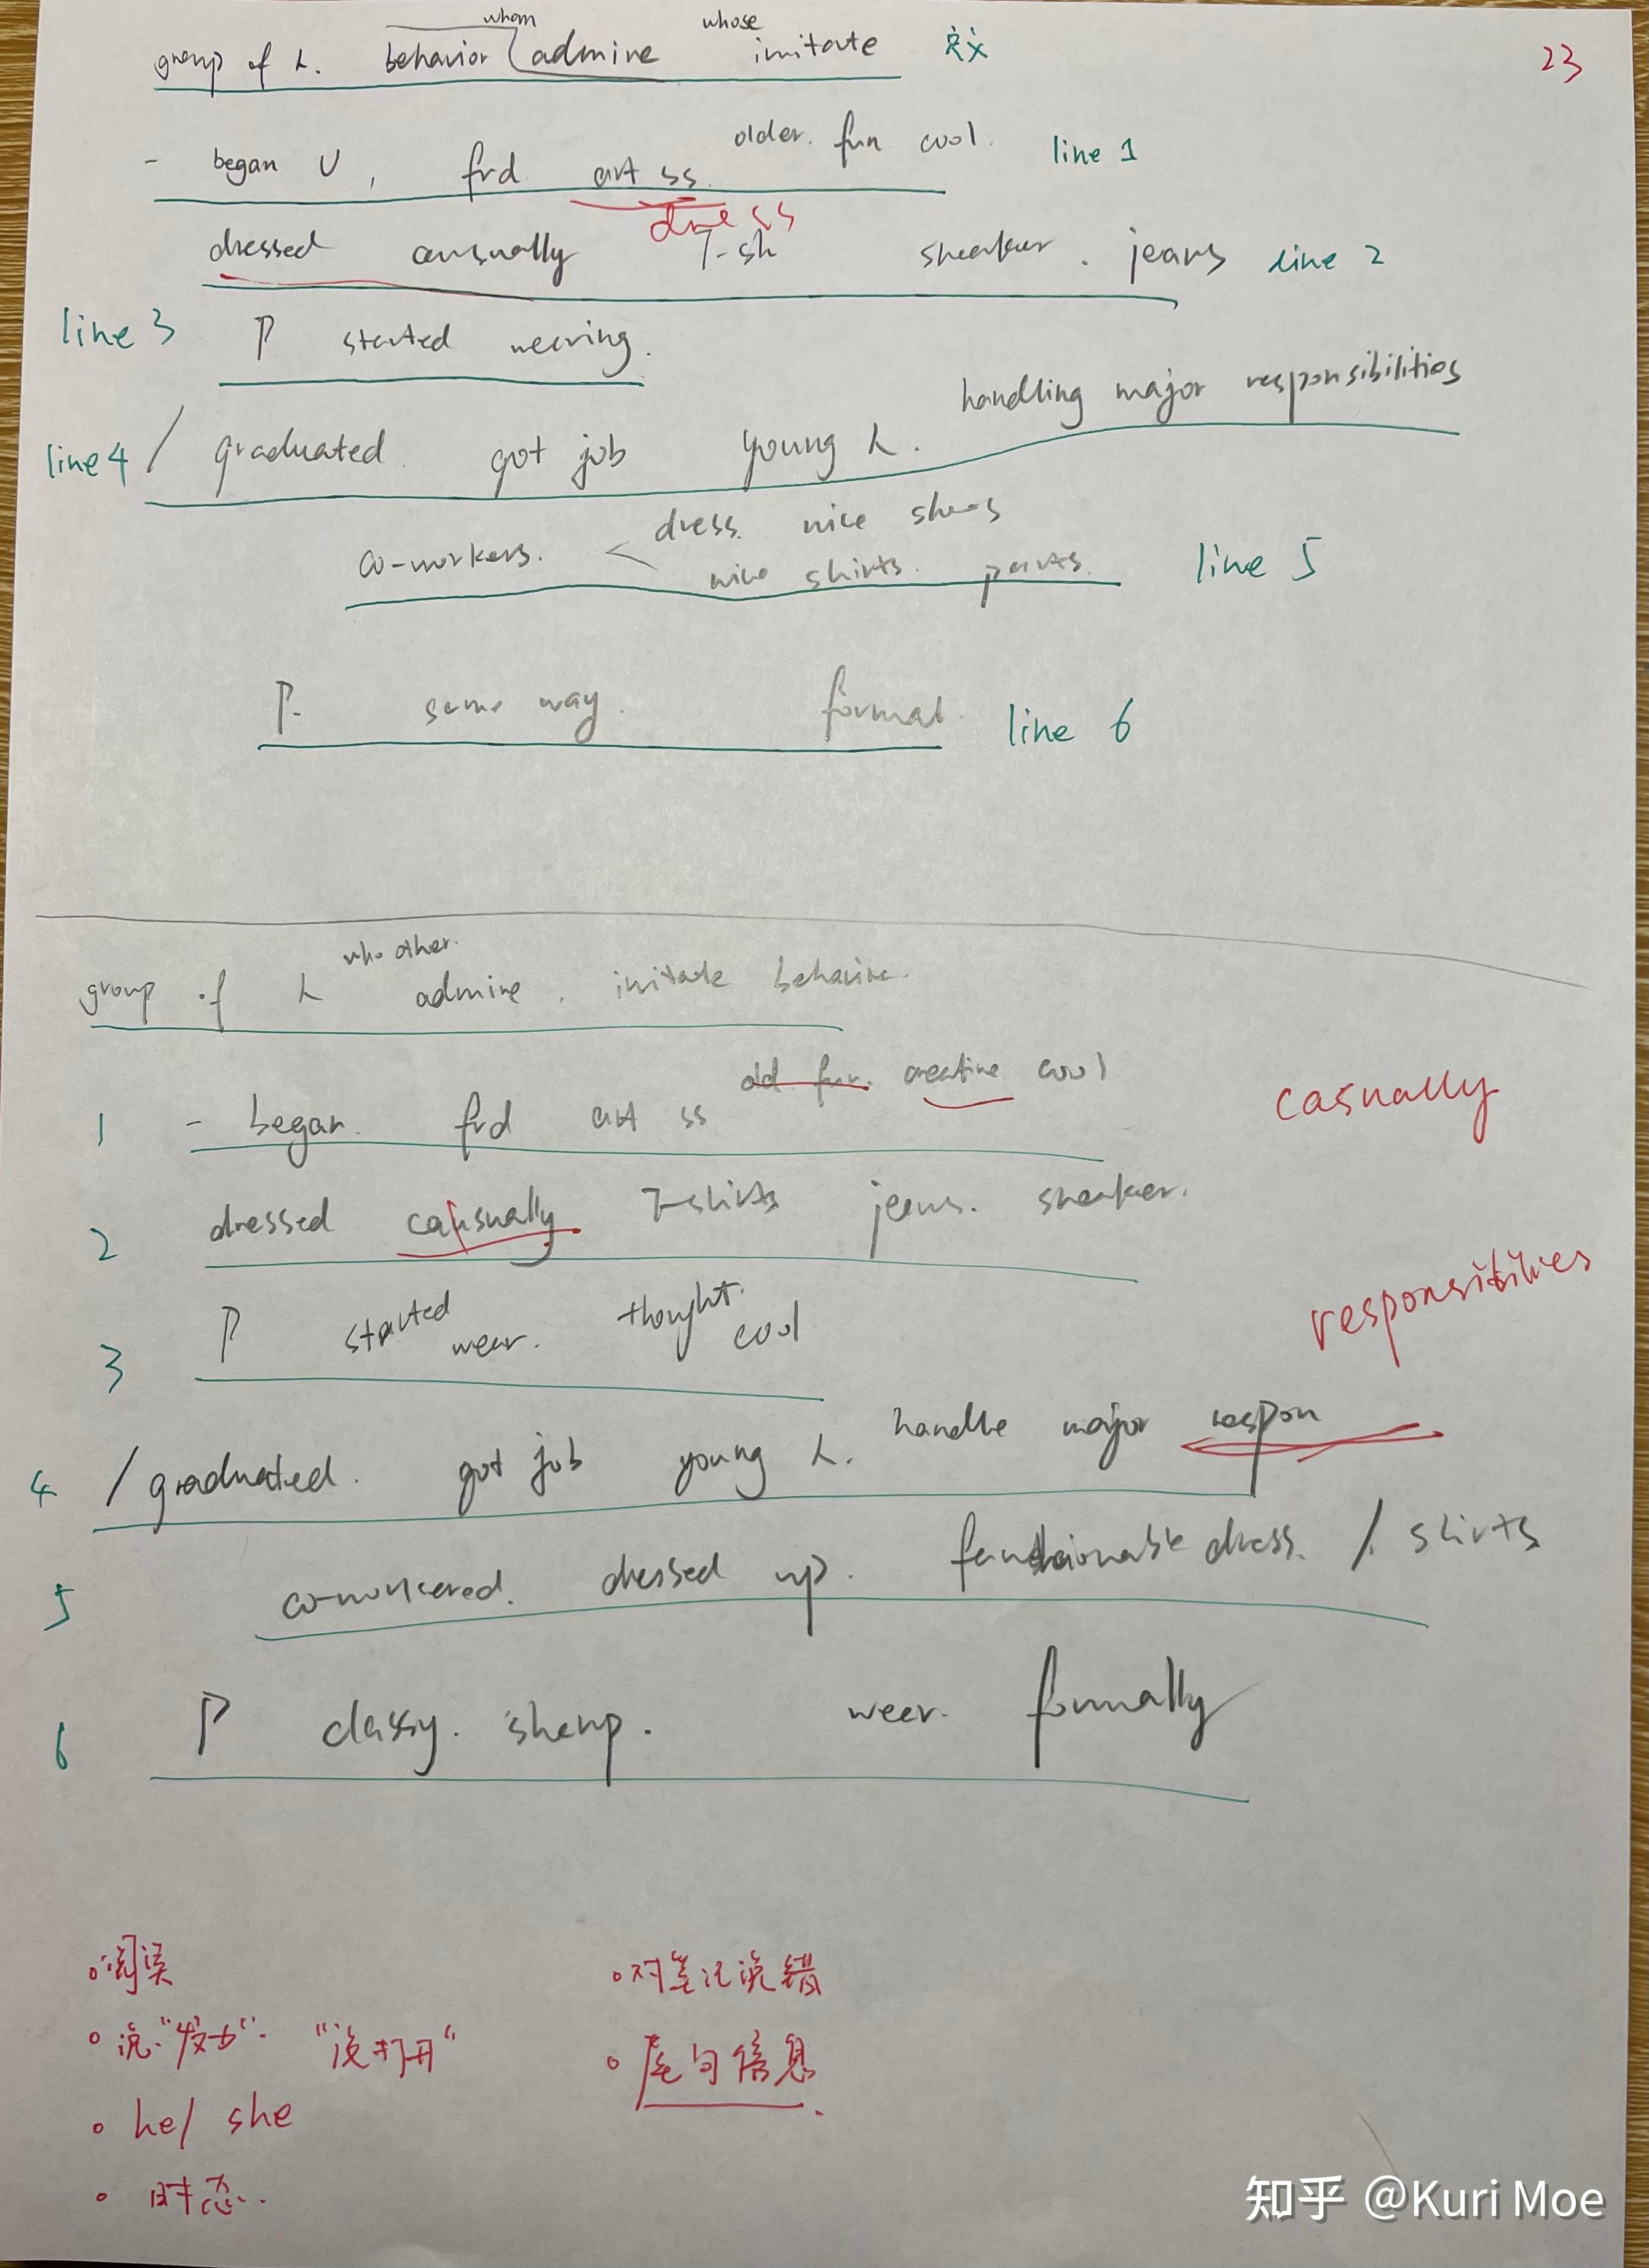 whom whose
group of 人. behavior admire imitate 定义
23
older. fun cool.
- began U, frd art ss. line 1
dress
dressed causually T-sh sneaker. jeans line 2
line 3 P started wearing.
handling major responsibilities
line 4 / graduated. got job young 人.
dress. nice shoes
co-workers. < nice shirts. pants. line 5
P. same way. formal. line 6
who other.
group of 人 admire, imitate behavior.
old fun. creative cool
1 - began. frd art ss
casually
2 dressed causually T-shirts jeans. sneaker.
3 P started wear. thought. cool
responsibilities
handle major respon
4 / graduated. got job young 人.
5 co-workered. dressed up. dress. / shirts
6 P classy. sharp. wear. formally
阅读
对笔记说错
说"发力". "没打开"
尾句信息.
he/ she
时态..
知乎 @Kuri Moe